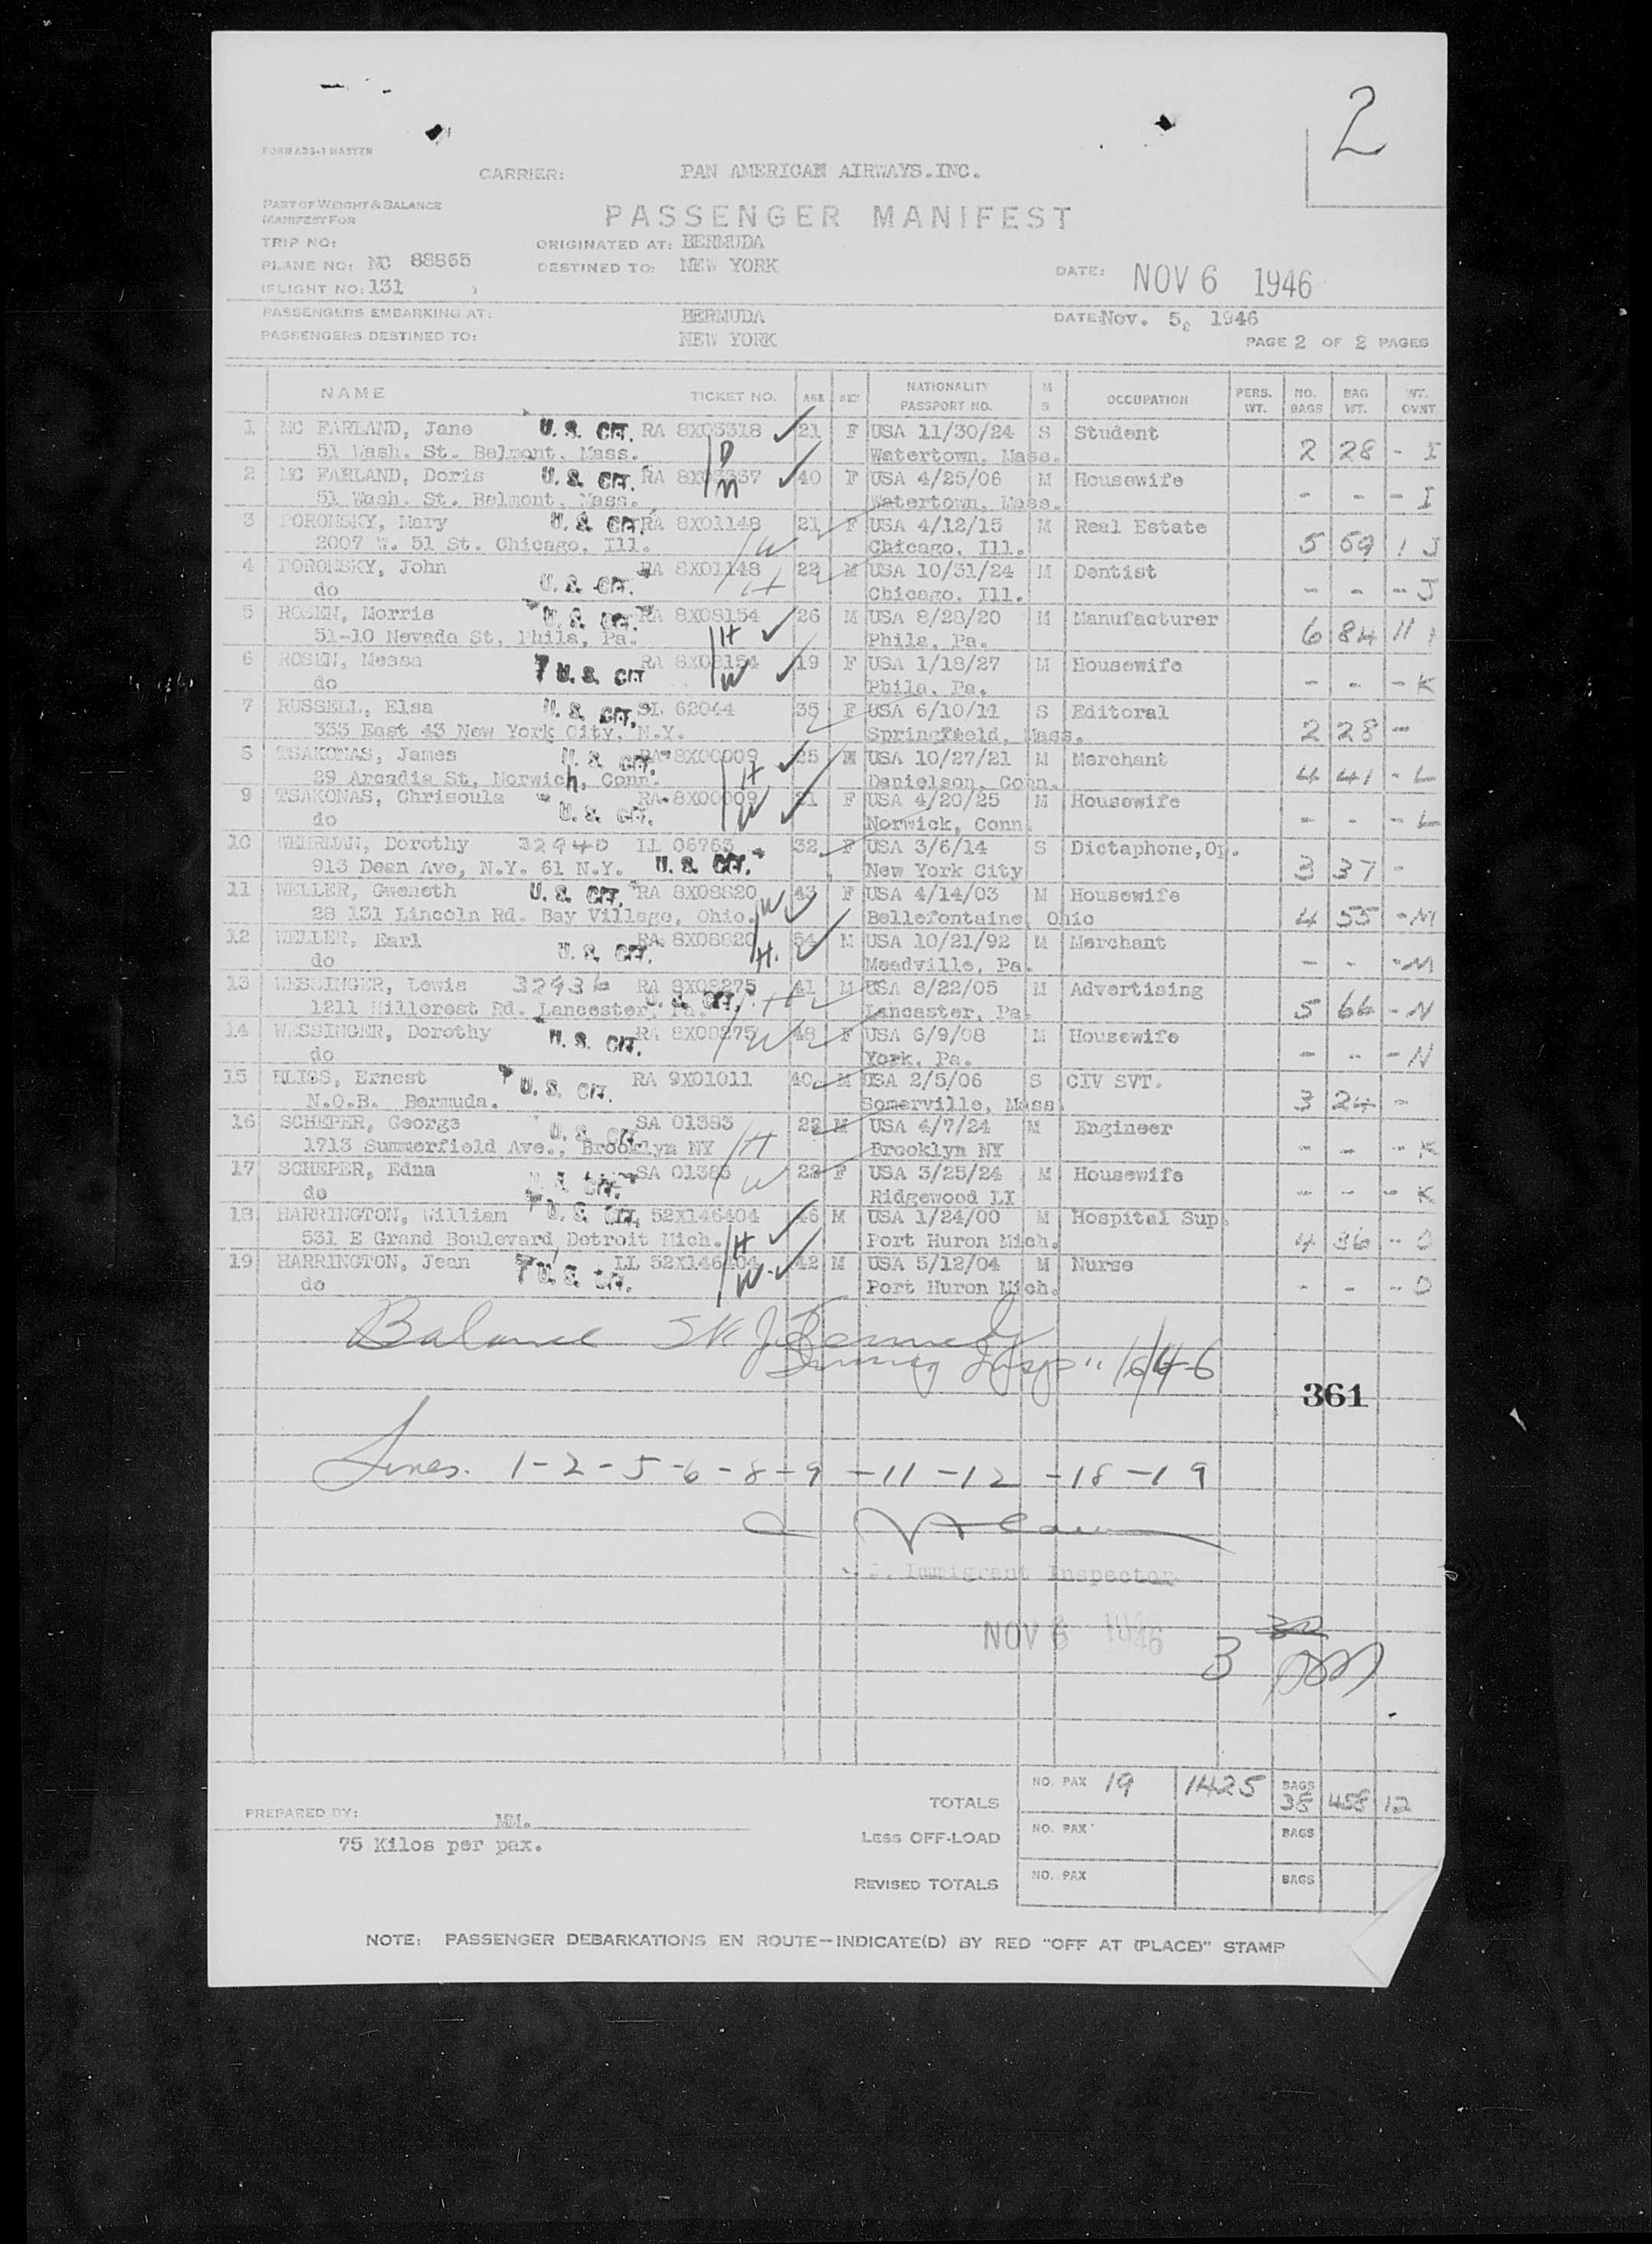 2
FORM A33-1 MASTER
CARRIER: PAN AMERICAN AIRWAYS.INC.
PART OF WEIGHT & BALANCE
MANIFEST FOR
PASSENGER MANIFEST
TRIP NO: ORIGINATED AT: BERMUDA
PLANE NO: NC 88865 DESTINED TO: NEW YORK DATE: NOV 6 1946
(FLIGHT NO: 131 )
PASSENGERS EMBARKING AT: BERMUDA DATE: Nov. 5, 1946
PASSENGERS DESTINED TO: NEW YORK PAGE 2 OF 2 PAGES
NAME TICKET NO. AGE SEX NATIONALITY PASSPORT NO. M S OCCUPATION PERS. WT. NO. BAGS BAG WT. WT. OVNT
1 MC FARLAND, Jane U. S. CIT. RA 8X03318 21 F USA 11/30/24 S Student
51 Wash. St. Belmont, Mass. D Watertown, Mass. 2 28 - I
2 MC FARLAND, Doris U. S. CIT. RA 40 F USA 4/25/06 M Housewife
51 Wash. St. Belmont, Mass. M Watertown, Mass. - - - I
3 POROMSKY, Mary U. S. CIT. RA 8X01148 21 F USA 4/12/15 M Real Estate
2007 W. 51 St. Chicago, Ill. W Chicago, Ill. 5 59 1 J
4 POROMSKY, John RA 8X01148 22 M USA 10/31/24 M Dentist
do U. S. CIT. H Chicago, Ill. - - - J
5 ROSEN, Morris U. S. CIT. RA 8X08154 26 M USA 8/28/20 M Manufacturer
51-10 Nevada St, Phila, Pa. H Phila, Pa. 6 84 11
6 ROSEN, Messa U. S. CIT RA 8X08154 19 F USA 1/18/27 M Housewife
do W Phila, Pa. - - - K
7 RUSSELL, Elsa U. S. CIT. SL 62044 35 F USA 6/10/11 S Editoral
333 East 43 New York City, N.Y. Springfield, Mass. 2 28 -
8 TSAKONAS, James U. S. CIT. RA 8X00009 25 M USA 10/27/21 M Merchant
29 Arcadia St, Norwich, Conn. H Danielson, Conn. 4 41 - L
9 TSAKONAS, Chrisoula RA 8X00009 21 F USA 4/20/25 M Housewife
do U. S. CIT. W Norwick, Conn. - - - L
10 WEHRMAN, Dorothy 32940 LL 06763 32 F USA 3/6/14 S Dictaphone, Op.
913 Dean Ave, N.Y. 61 N.Y. U. S. CIT. New York City 3 37 -
11 WELLER, Gweneth U. S. CIT. RA 8X08820 W 43 F USA 4/14/03 M Housewife
28 131 Lincoln Rd. Bay Village, Ohio. Bellefontaine, Ohio 4 55 - M
12 WELLER, Earl RA 8X08820 54 M USA 10/21/92 M Merchant
do U. S. CIT. H. Meadville, Pa. - - - M
13 WESSINGER, Lewis 32936 RA 8X08275 41 M USA 8/22/05 M Advertising
1211 Hillcrest Rd. Lancester, Pa. U. S. CIT. H Lancaster, Pa. 5 66 - N
14 WESSINGER, Dorothy RA 8X08275 48 F USA 6/9/08 M Housewife
do U. S. CIT. W York, Pa. - - - N
15 BLIGS, Ernest RA 9X01011 40 M USA 2/5/06 S CIV SVT.
N.O.B. Bermuda. U. S. CIT. Somerville, Mass. 3 24 -
16 SCHEPER, George SA 01383 22 M USA 4/7/24 M Engineer
1713 Summerfield Ave., Brooklyn NY U. S. CIT. H Brooklyn NY - - - K
17 SCHEPER, Edna SA 01383 22 F USA 3/25/24 M Housewife
do CIT. W Ridgewood LI - - - K
18 HARRINGTON, William U. S. CIT. 52X146404 46 M USA 1/24/00 M Hospital Sup.
531 E Grand Boulevard Detroit Mich. H Port Huron Mich. 4 36 - O
19 HARRINGTON, Jean LL 52X146404 42 M USA 5/12/04 M Nurse
do U. S. CIT. W Port Huron Mich. - - - O
Balance
Immig Insp 11/6/46
361
Lines. 1-2-5-6-8-9-11-12-18-19
S. Immigrant Inspector
NOV 6 1946
3
TOTALS NO. PAX 19 1425 BAGS 38 458 12
PREPARED BY: MM.
75 Kilos per pax.
LESS OFF-LOAD NO. PAX BAGS
REVISED TOTALS NO. PAX BAGS
NOTE: PASSENGER DEBARKATIONS EN ROUTE—INDICATE(D) BY RED "OFF AT (PLACE)" STAMP